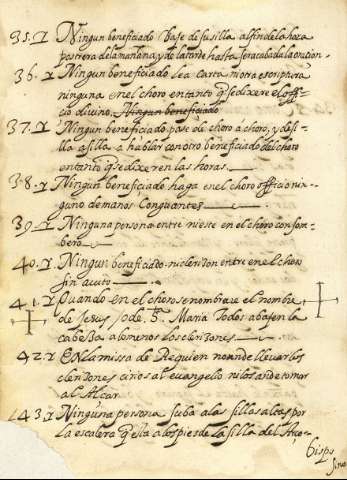 35. Ningun beneficiado baxe de su silla al fin de la hora
postrera de la mañana, y de la tarde hasta ser acabada la oration.
36. Ningun beneficiado lea carta ni otra escriptura
ninguna en el choro en tanto q̃ se dixere el offi
cio divino. Ningun beneficiado
37. Ningun beneficiado pase de choro a choro, y de si-
lla a silla a hablar con otro beneficiado del choro
en tanto q̃ se dixeren las horas.
38. Ningun beneficiado haga en el choro officio nin-
guno de manos con guantes
39. Ninguna persona entre ni este en el choro con som-
brero
40. Ningun beneficiado ni clerizon entre en el choro
sin
41. Quando en el choro se nombrare el nombre
de Jesus, o de S. Maria Todos abajen la
cabeza a lo menos los clerizones
42. En la missa de Requien no an de llevar los
clerizones cirios al evangelio ni los an de tomar
al Alçar
43. Ninguna persona suba a las sillas altas por
la escalera q̃ esta a los pies de la silla del Arço-
bispo
sino